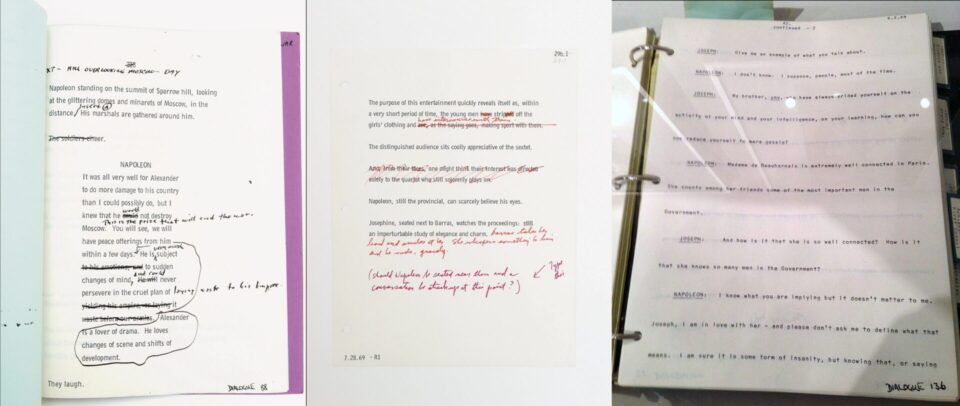 JAR
XT - HILL OVERLOOKING MOSCOW - DAY
Napoleon standing on the summit of Sparrow hill, looking
at the glittering domes and minarets of Moscow, in the
distance. His marshals are gathered around him.
The soldiers cheer.
NAPOLEON
It was all very well for Alexander
to do more damage to his country
than I could possibly do, but I
knew that he would not destroy
This is the prize that will end the war.
Moscow. You will see, we will
have peace offerings from him
within a few days. He is very much subject
to his emotions, and to sudden
changes of mind, and could never
persevere in the cruel plan of laying waste to his Empire.
yielding his empire, or laying it
Alexander
is a lover of drama. He loves
changes of scene and shifts of
development.
They laugh.
DIALOGUE 58
29b.1
The purpose of this entertainment quickly reveals itself as, within
a very short period of time, the young men have stripped off the
have intercourse with them
girls' clothing and are, as the saying goes, making sport with them.
The distinguished audience sits coolly appreciative of the sextet.
And, from their faces, one might think their interest was affected
solely to the quartet who still solemnly plays on.
Napoleon, still the provincial, can scarcely believe his eyes.
Josephine, seated next to Barras, watches the proceedings: still
an imperturbable study of elegance and charm, Barras takes her
hand and smiles at her. She whispers something to him
and he nods, gravely
(Should Napoleon be seated near them and a
conversation be struck up at this point?)
Type
this
7.28.69 - R1
42.
continued - 2
8.2.69
JOSEPH: Give me an example of what you talk about.
NAPOLEON: I don't know. I suppose, people, most of the time.
JOSEPH: My brother, you, who have always prided yourself on the
activity of your mind and your intelligence, on your learning, how can you
now reduce yourself to mere gossip?
NAPOLEON: Madame de Beauharnais is extremely well connected in Paris.
She counts among her friends some of the most important men in the
Government.
JOSEPH: And how is it that she is so well connected? How is it
that she knows so many men in the Government?
NAPOLEON: I know what you are implying but it doesn't matter to me.
Joseph, I am in love with her - and please don't ask me to define what that
means. I am sure it is some form of insanity, but knowing that, or saying
DIALOGUE 136